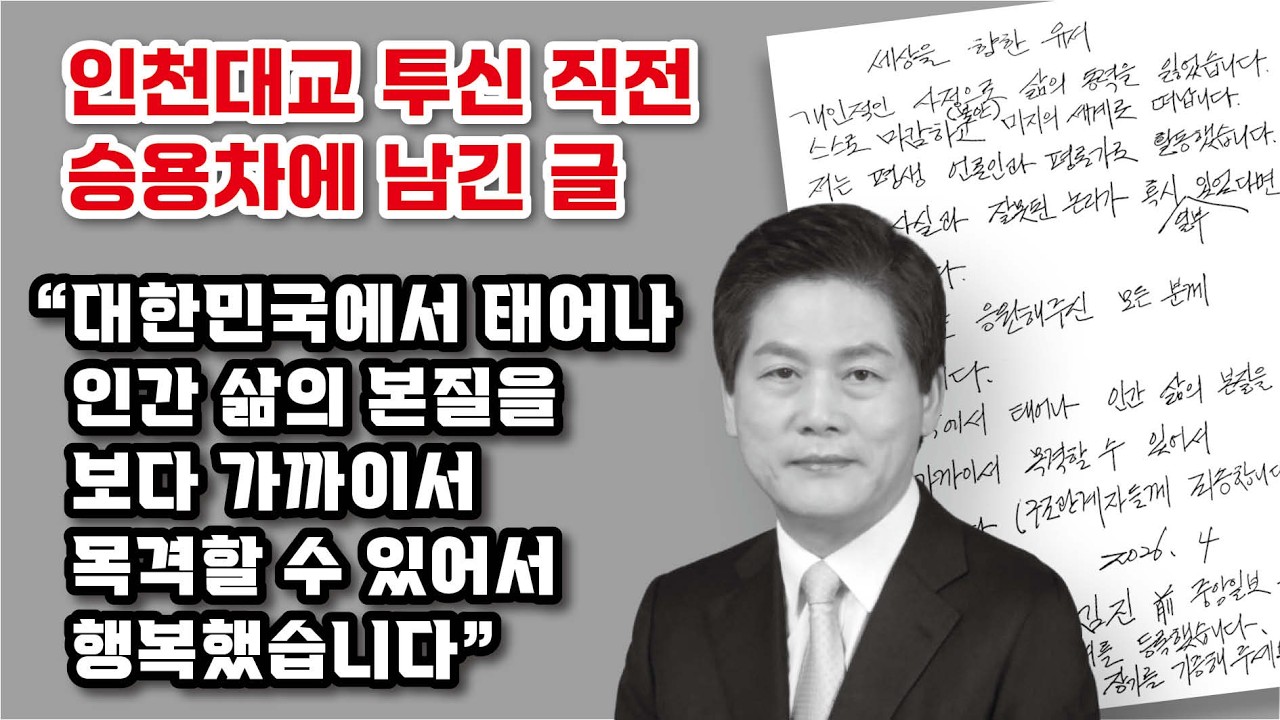 인천대교 투신 직전
승용차에 남긴 글
“대한민국에서 태어나
인간 삶의 본질을
보다 가까이서
목격할 수 있어서
행복했습니다”
세상을 향한 유서
개인적인 사정으로 삶의 동력을 잃었습니다.
스스로 마감하고 미지의 세계로 떠납니다.
저는 평생 언론인과 평론가로 활동했습니다.
사실과 잘못된 논리가 혹시 있었다면
일부
다.
응원해주신 모든 분께
니다.
에서 태어나 인간 삶의 본질을
가까이서 목격할 수 있어서
다 (구조관계자들께 죄송합니다
2026. 4
김진 前 중앙일보
를 등록했습니다.
장기를 기증해 주세요